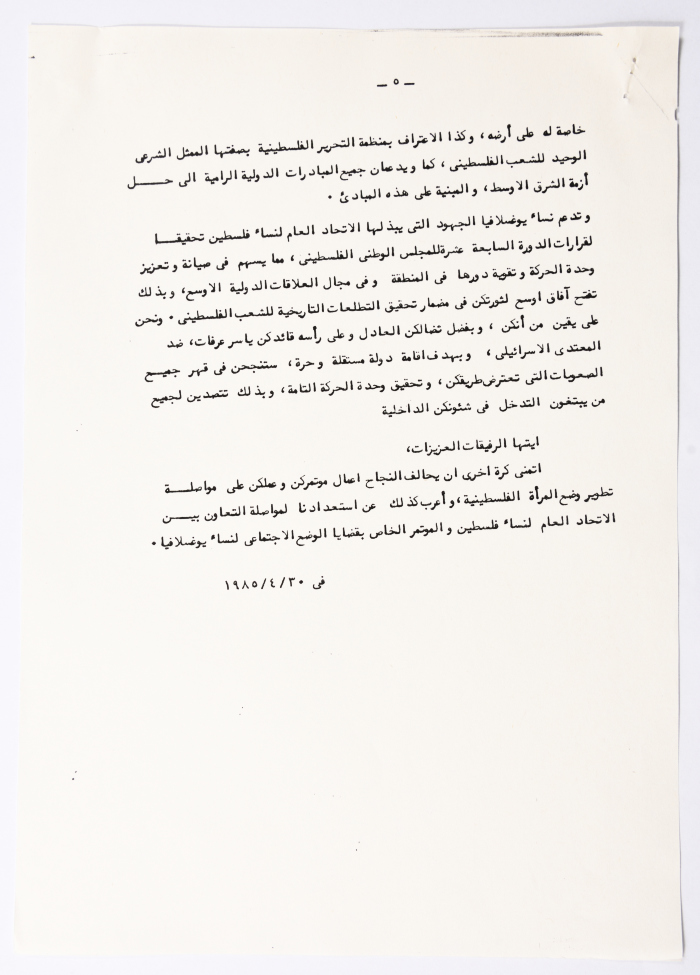 ــ ٥ ــ
خاصة له على أرضه، وكذا الاعتراف بمنظمة التحرير الفلسطينية بصفتها الممثل الشرعى
الوحيد للشعب الفلسطينى، كما ويدعمان جميع المبادرات الدولية الرامية الى حــــل
أزمة الشرق الاوسط، والمبنية على هذه المبادئ ٠
وتدعم نساء يوغسلافيا الجهود التى يبذلها الاتحاد العام لنساء فلسطين تحقيقــا
لقرارات الدورة السابعة عشرة للمجلس الوطنى الفلسطينى، مما يسهم فى صيانة وتعزيز
وحدة الحركة وتقوية دورها فى المنطقة وفى مجال العلاقات الدولية الاوسع، وبذلك
تفتح آفاق اوسع لثورتكن فى مضمار تحقيق التطلعات التاريخية للشعب الفلسطينى ٠ ونحن
على يقين من أنكن ، وبفضل نضالكن العادل وعلى رأسه قائدكن ياسر عرفات، ضد
المعتدى الاسرائيلى، وبهدف اقامة دولة مستقلة وحرة، ستنجحن فى قهر جميــع
الصعوبات التى تعترض طريقكن، وتحقيق وحدة الحركة التامة، وبذلك تتصدين لجميع
من يبتغون التدخل فى شئونكن الداخلية
ايتها الرفيقات العزيزات،
اتمنى كرة اخرى ان يحالف النجاح اعمال موتمركن وعملكن على مواصلــــة
تطوير وضع المرأة الفلسطينية، وأعرب كذلك عن استعدادنا لمواصلة التعاون بيــــن
الاتحاد العام لنساء فلسطين والموتمر الخاص بقضايا الوضع الاجتماعى لنساء يوغسلافيا ٠
فى ٣٠/٤/١٩٨٥